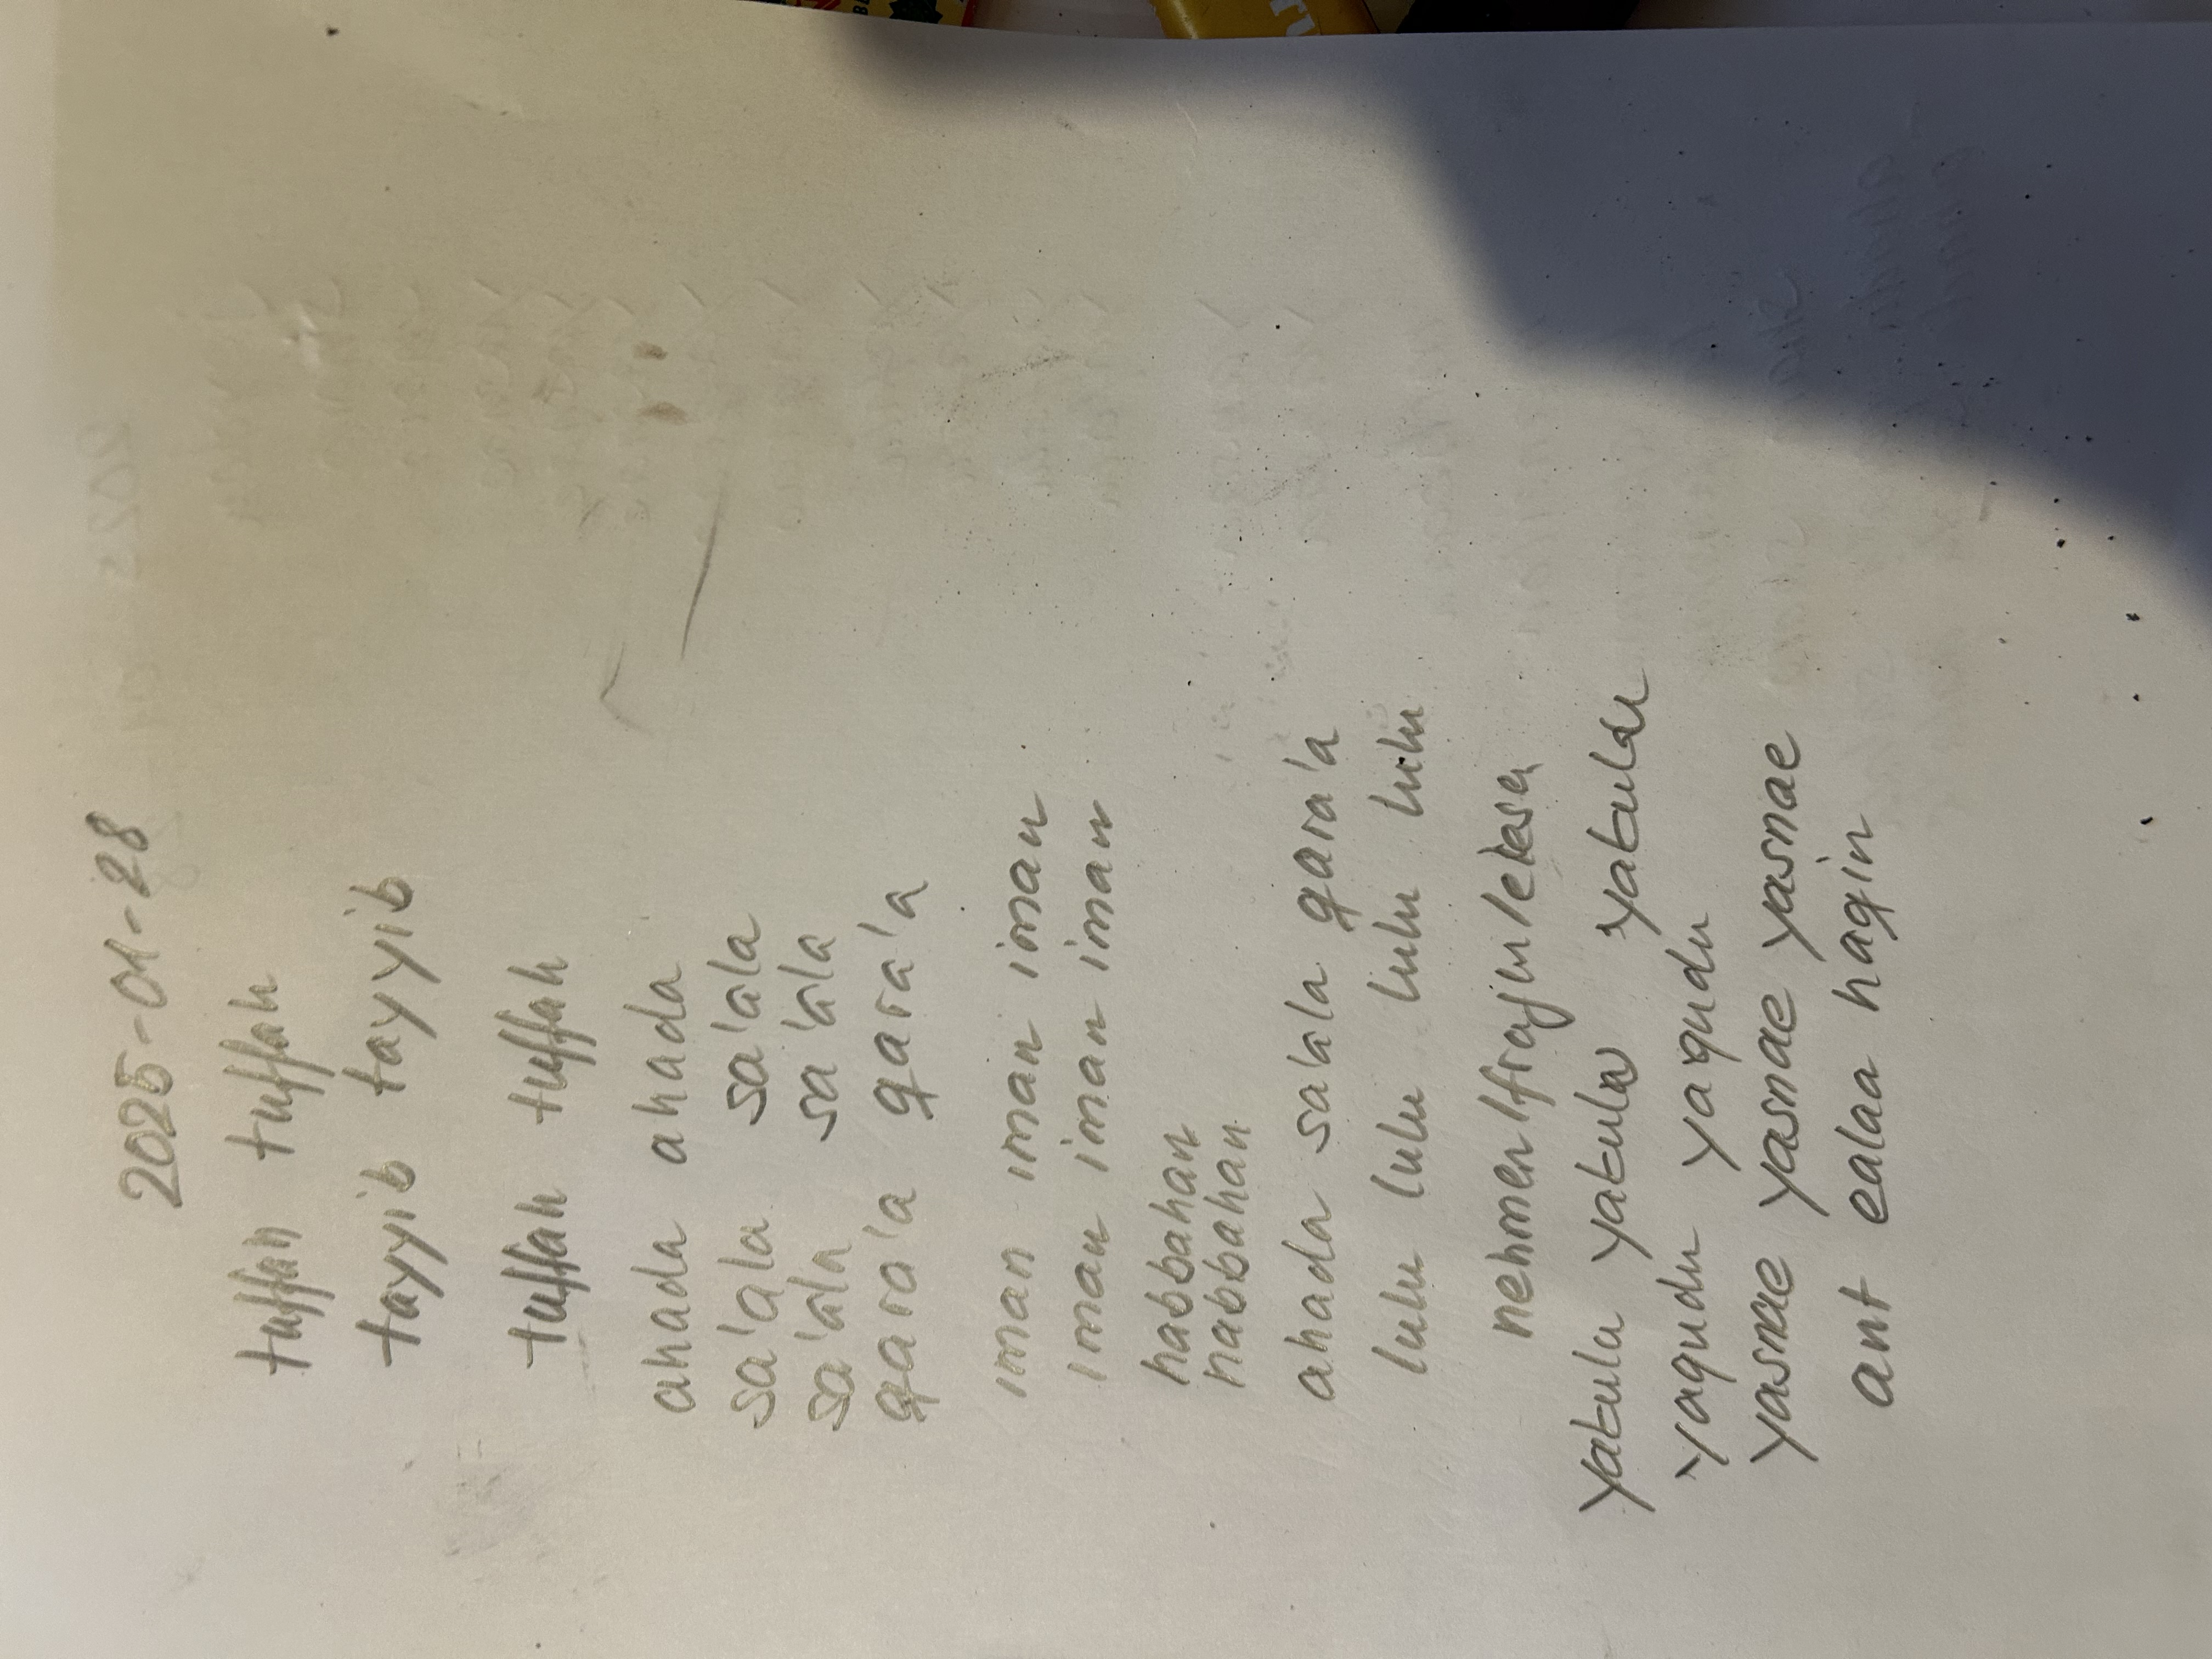 2025-01-28
tuffah tuffah
tayyib tayyib
tuffah tuffah
ahada ahada
sa'ala sa'ala
sa'ala sa'ala
qara'a qara'a
iman iman iman
iman iman iman
habbahan
habbahan
ahada sa'ala qara'a
lulu lulu lulu lulu
nehmen/fragen/lesen
yakulu yakulu yakulu
yaqudu yaqudu
yasmae yasmae yasmae
ant ealaa haqin